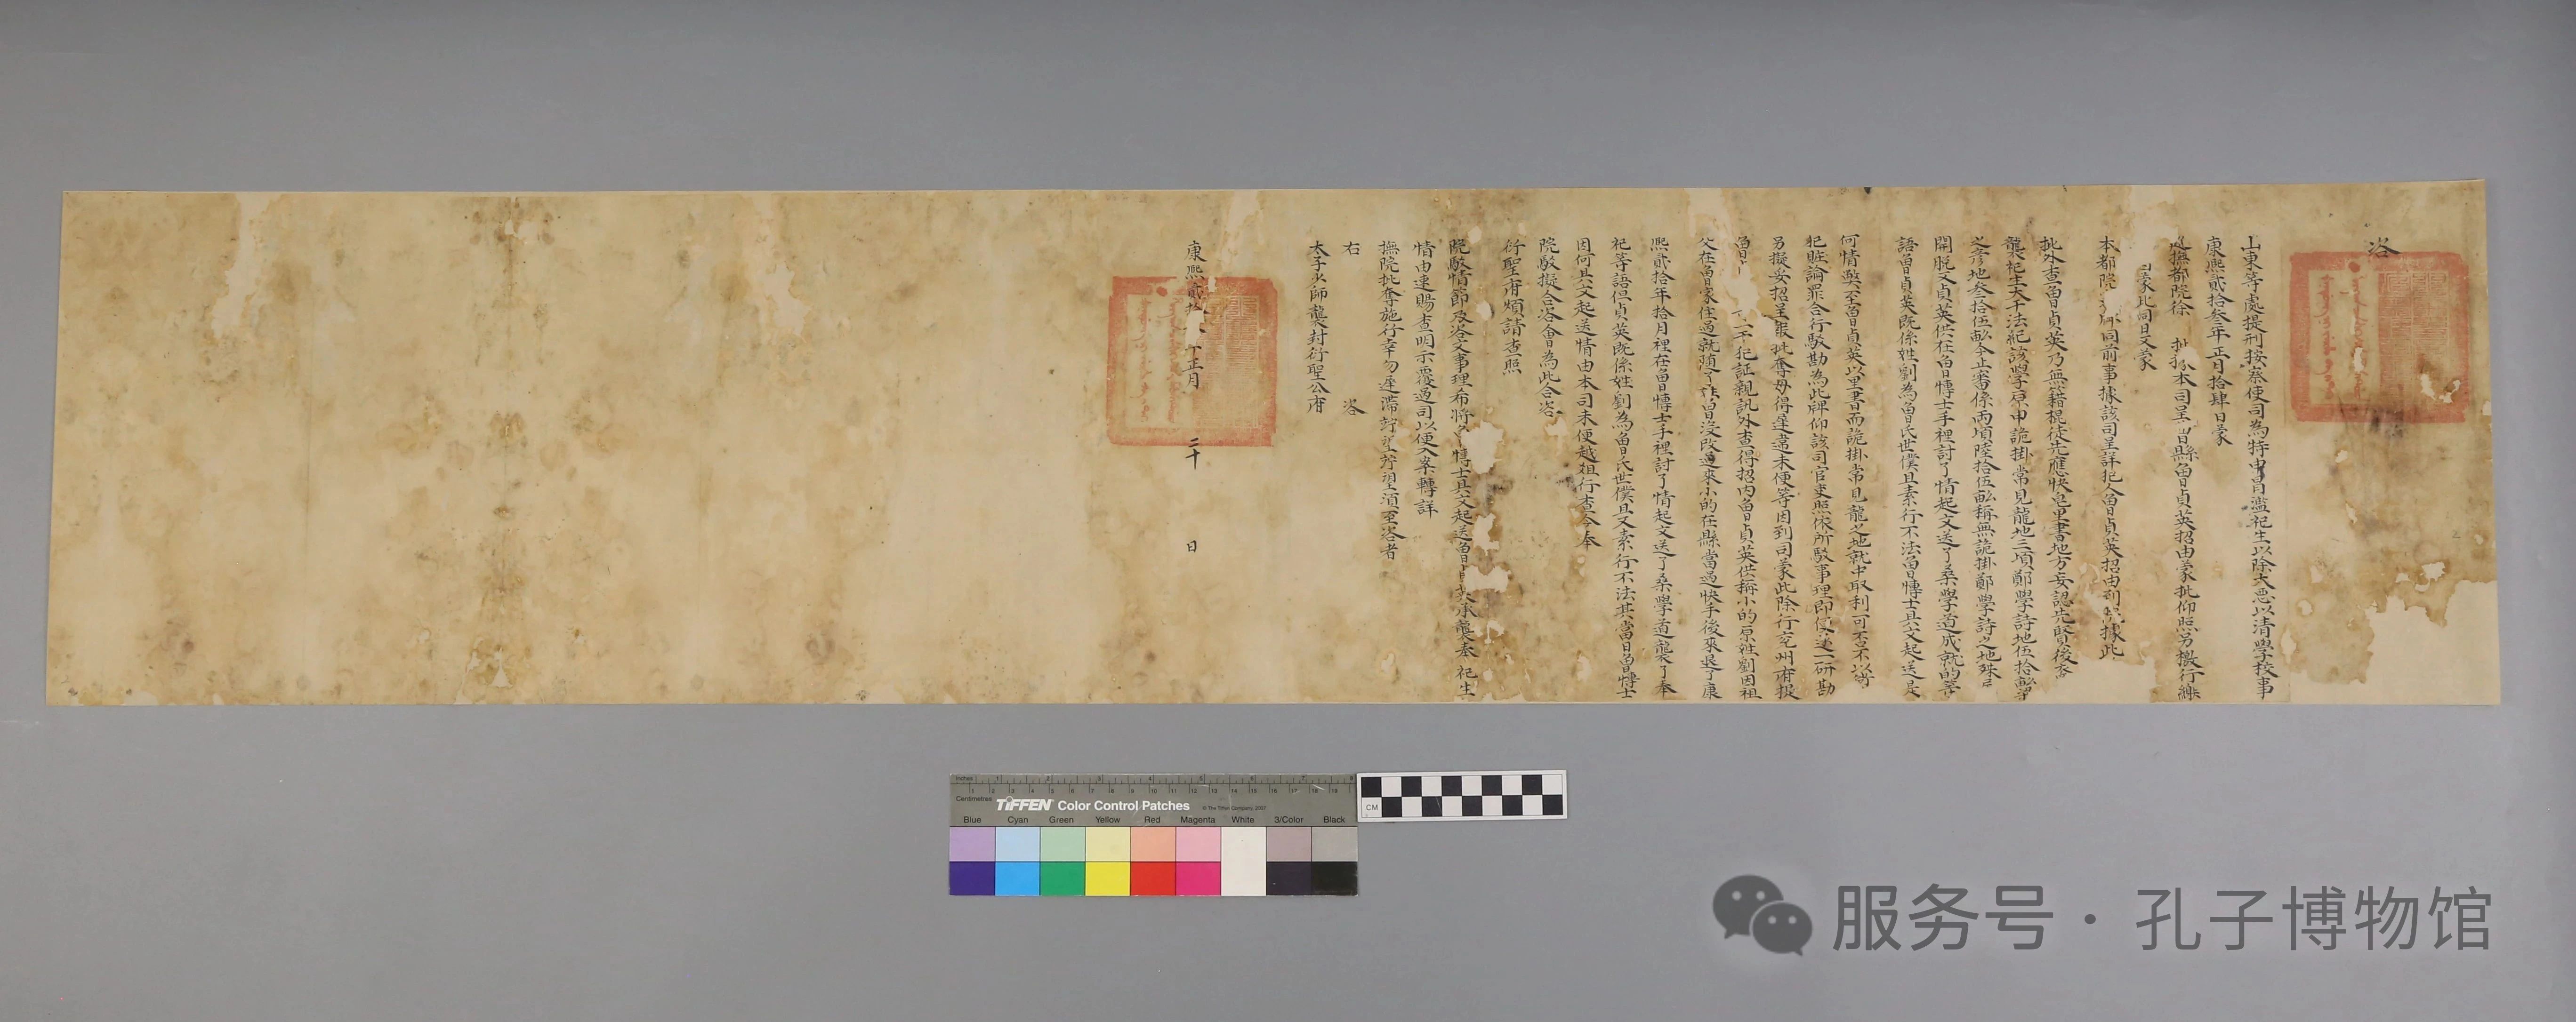 咨
山東等處提刑按察使司為特申冒濫祀生以除大惡以清學校事
康熙貳拾叁年正月拾肆日蒙
巡撫都院徐 批 本司呈 曾縣曾貞英招由蒙批仰照另檄行繳
蒙此同日又蒙
本都院 同前事據該司呈詳犯人曾貞英招由到 據此
批外查曾貞英乃無籍棍徒先應快皂串書地方妄認先賢後裔
襲祀生大干法紀該學原申詭掛常見龍地三項鄭學詩地伍拾畝
之彥地叁拾伍畝今止審係兩項陸拾伍畝稱無詭掛鄭學詩之地殊
開脫又貞英供在曾博士手裡討了情起文送了桑學道成就的等
語曾貞英既係姓劉為曾氏世僕且素行不法曾博士具文起送是
何情獘至曾貞英以里書而詭掛常見龍之地就中取利可否不以
犯賍論罪合行駁勘為此牌仰該司官吏照依所駁事理即便逐一研勘
另擬妥招呈報批奪毋得違錯未便等因到司蒙此除行兗州府提
曾 一干犯証親訊外查得招內曾貞英供稱小的原姓劉因祖
父在曾家住過就随了姓曾沒改過來小的在縣當過快手後來退了康
熙貳拾年拾月裡在曾博士手裡討了情起文送了桑學道襲了奉
祀等語但貞英既係姓劉為曾氏世僕且又素行不法其當日曾博士
因何具文起送情由本司未便越俎行查今奉
院駁擬合咨會為此合咨
衍聖府煩請查照
院駁情節及咨文事理布將 博士具文起送曾貞英承襲奉祀生
情由速賜查明示覆過司以便入案轉詳
撫院批奪施行幸勿遲滯 望須至咨者
右 咨
太子少師襲封衍聖公府
康熙貳拾 年正月 二十 日
Inches
Centimetres
TIFFEN Color Control Patches © The Tiffen Company, 2007
Blue Cyan Green Yellow Red Magenta White 3/Color Black
CM
服务号 · 孔子博物馆